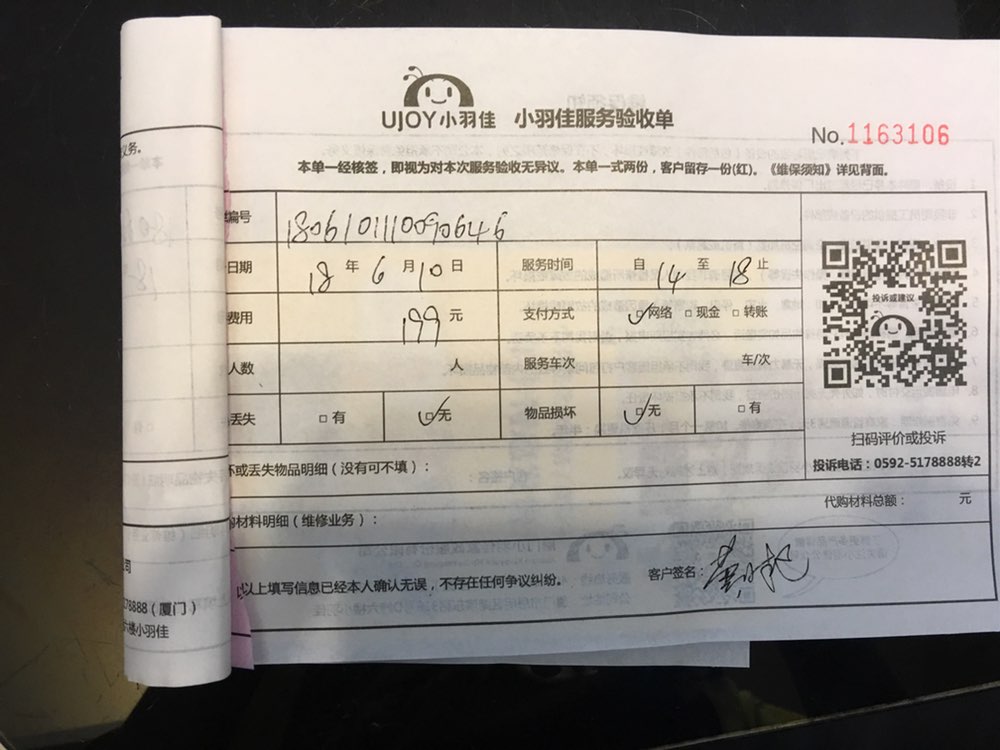 UJOY小羽佳 小羽佳服务验收单
No.1163106
本单一经核签，即视为对本次服务验收无异议。本单一式两份，客户留存一份(红)。《维保须知》详见背面。
编号
日期 18 年 6 月 10 日 服务时间 自 14 至 18 止
费用 199 元 支付方式 ☑网络 □现金 □转账
人数 人 服务车次 车/次
丢失 □有 ☑无 物品损坏 ☑无 □有
投诉或建议
扫码评价或投诉
投诉电话：0592-5178888转2
坏或丢失物品明细（没有可不填）：
代购材料总额： 元
购材料明细（维修业务）：
以上填写信息已经本人确认无误，不存在任何争议纠纷。
客户签名：
务。
司
178888（厦门）
六楼小羽佳